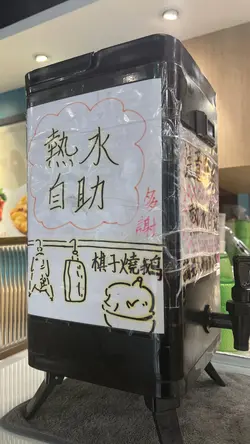 熱水
自助
多謝
棋子燒鵝